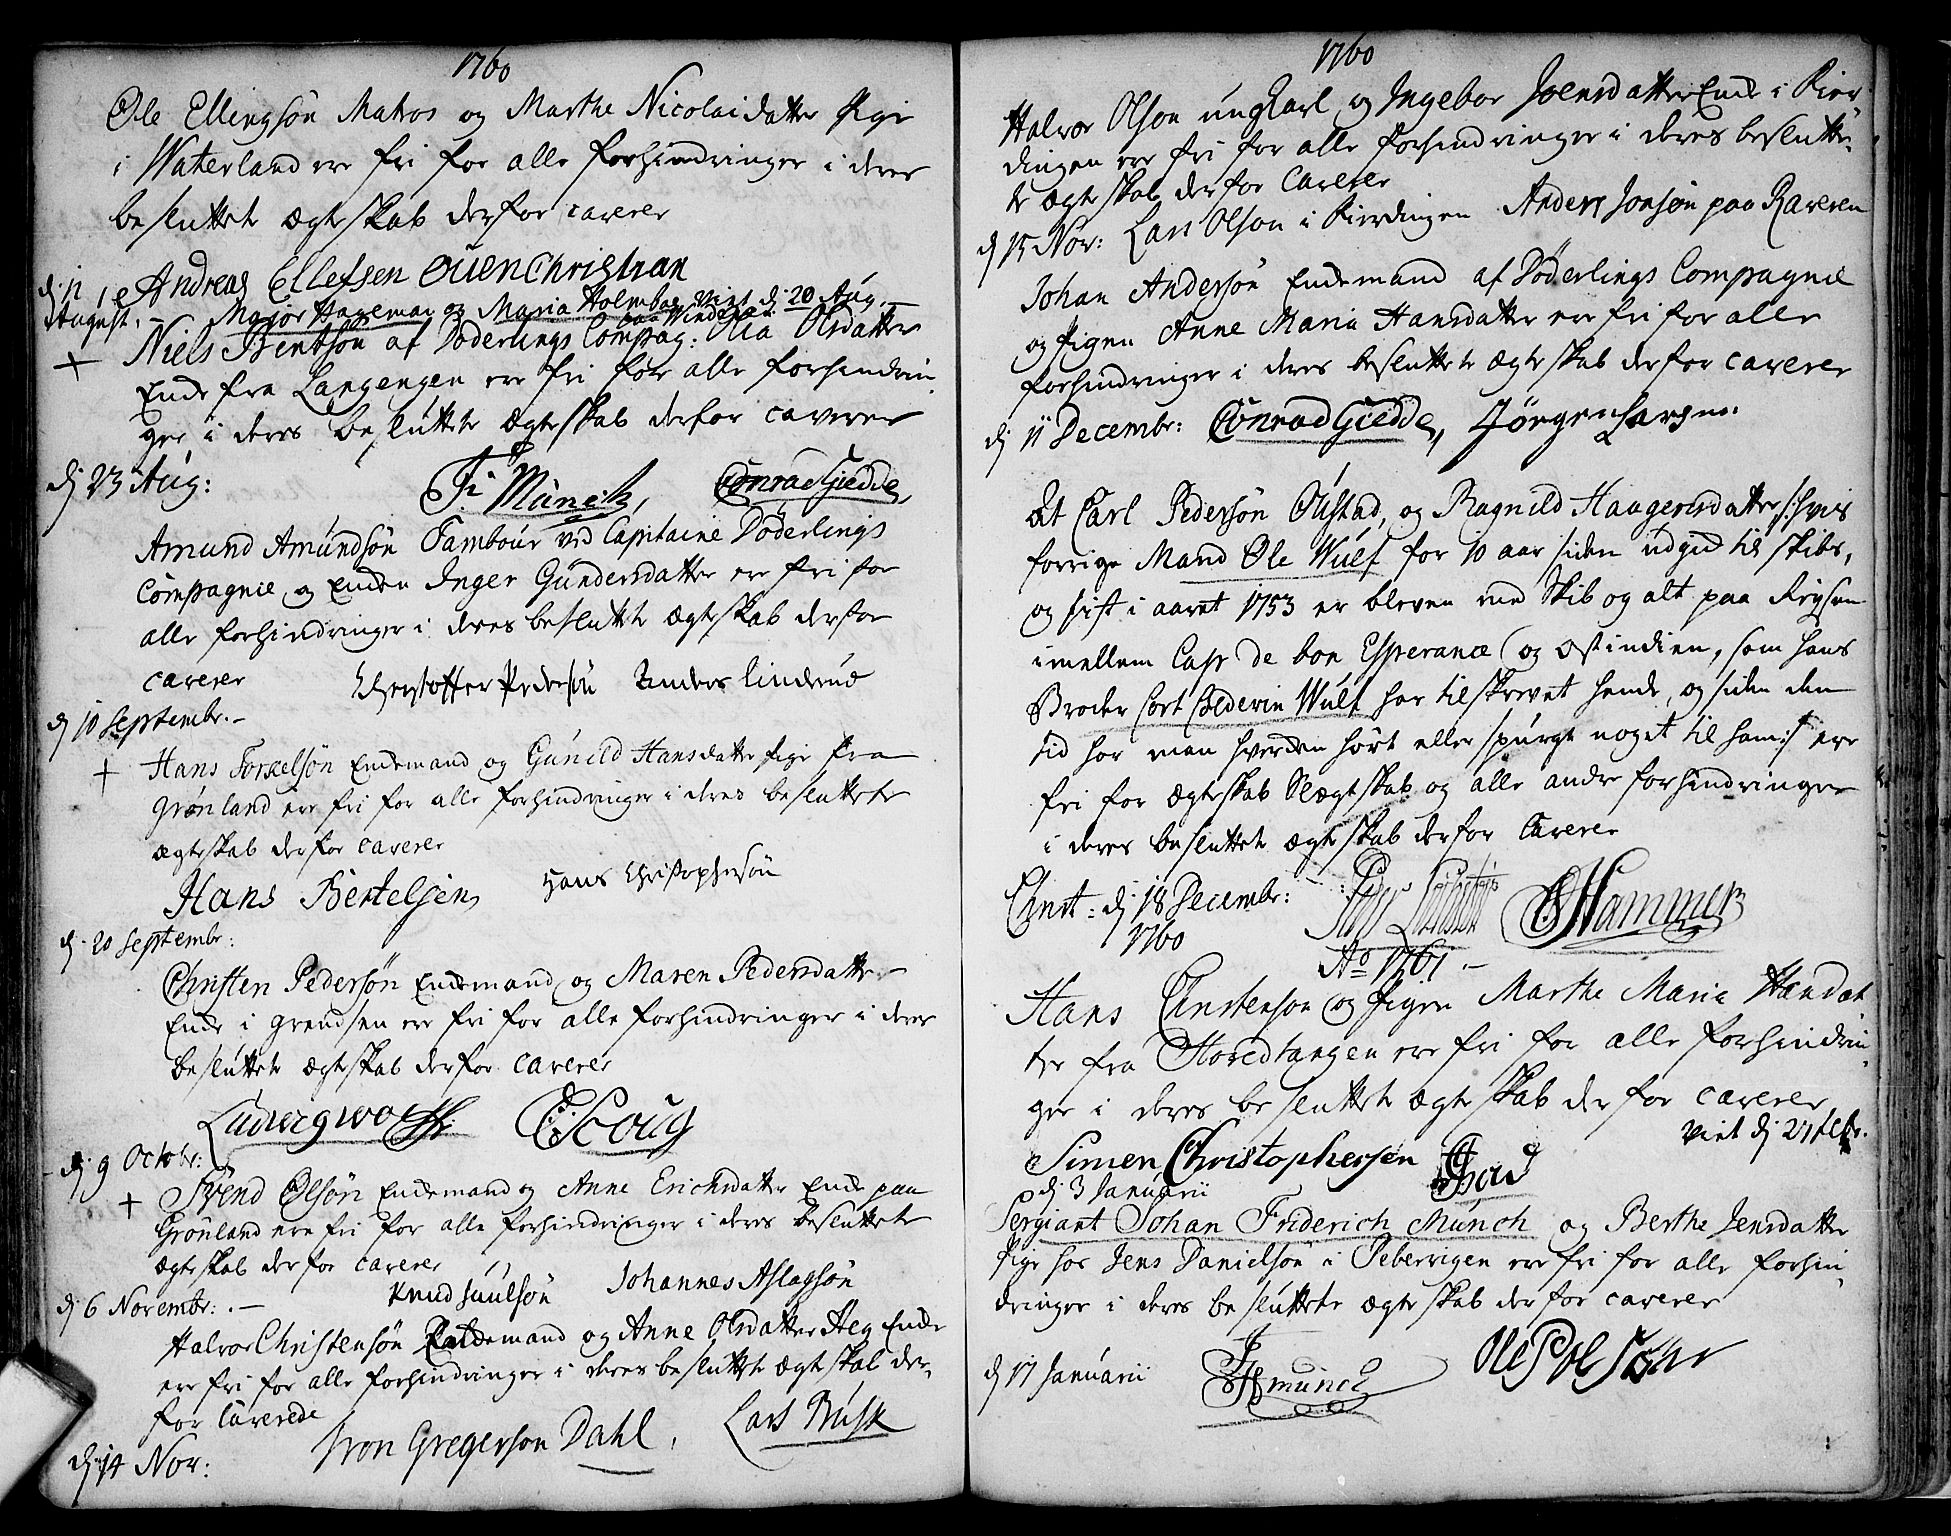 1760
Ole Ellingsön Matros og Marthe Nicolai datter Pige
i Waterland ere fri for alle forhindringer i deres
besluttet ægteskab derfor caverer
Andreas Ellefsen Ouen Christian
August. Major Hageman og Maria Holmboe Viet d 20 Aug.
Niels Bentsön af Döderlings Compag: Olia Olsdatter
Enke fra Langengen ere fri for alle forhindrin
ger i deres besluttet ægteskab derfor caverer
d 23 Aug: Fr Münch, Conrad Giedde,
Amund Amundsön Tambour ved Capitaine Döderlings
Compagnie og Enken Inger Gundersdatter ere fri for
alle forhindringer i deres besluttet ægteskab derfor
caverer Christoffer Pedersön Anders linderud
d 10 Septembr.
+ Hans Torkelsön Enkemand og Gunild Hansdatter Pige fra
Grönland ere fri for alle forhindringer i deres besluttet
ægteskab derfor caverer
Hans Bertelsen, Hans Christophersön
d. 20 Septembr:
Christen Pedersön Enkemand og Maren Pedersdatter
Enke i Grendsen ere fri for alle forhindringer i deres
besluttet ægteskab derfor caverer
d 9 Octobr:
+ Svend Olsön Enkemand og Anne Erichsdatter Enke paa
Grönland ere fri for alle forhindringer i deres besluttet
ægteskab derfor caverer
Knud Juulsön Johannes Aslagsön
d 6 Novembr:
Halvor Christensön Enkemand og Anne Olsdatter Aeg Enke
ere fri for alle forhindringer i deres besluttet ægteskab der
for Caverede
d 14 Nov: Iver Gregerson Dahl, Lars Busk
1760
Halvor Olson ungkarl og Ingebor Joensdatter Enke i Pier
dingen ere fri for alle forhindringer i deres beslutte
te ægteskab derfor Caverer
d 15 Nov: Lars Olson i Pierdingen Anders Jonsön paa Raveren
Johan Andersön Enkemand af Döderlings Compagnie
og Pigen Anne Maria Hansdatter ere fri for alle
forhindringer i deres besluttet ægteskab derfor caverer
d 11 Decembr: Conrad Giedde, Jörgen Larsen.
At Carl Pedersön Oustad, og Ragnild Haagensdatter /: hvis
forrige Mand Ole Wulf for 10 aar siden udgik til skibs,
og sist i aaret 1753 er bleven med Skib og alt paa Reysen
imellem Cap de bon Esperance og Ostindien, som hans
Broder Cort Colderin Wulf har tilskrevet hende, og siden den
tid har man hverken hört eller spurgt noget til ham :/ ere
fri for ægteskab Slægtskab og alle andre forhindringer
i deres besluttet ægteskab derfor Caverer
Christ: d 18 Decembr: Hammer
1760
Ao 1761.
Hans Christenson og Pigen Marthe Maria Hansdat
ter fra Storedtangen ere fri for alle forhindrin
ger i deres besluttet ægteskab derfor caverer
Viet d 27 Febr.
Simen Christophersen
d 3 Januarii
Sergiant Johan Friderich Münch og Berthe Jensdatter
Pige hos Jens Danielsön i Pebervigen ere fri for alle forhin
dringer i deres besluttet ægteskab derfor caverer
d 17 Januarii Münch